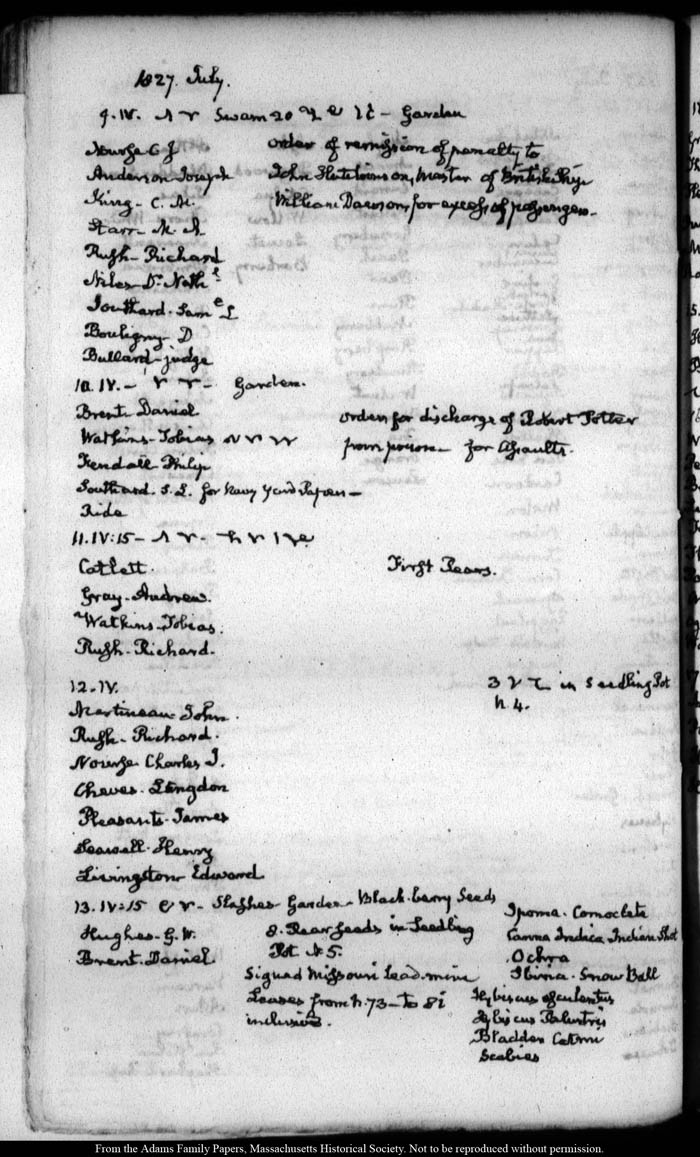 1827. July.
9. IV. Swam 20 Garden
Nourse C J order of remission of penalty to
Anderson Joseph John Hutchinson, Master of British Ship
King - C. M. William Dawson, for excess of passengers -
Starr
Rush - Richard
Niles Dr. Nath l
Southard. Sam l L
Bouligny. D
Bullard - judge
10. IV. - Garden.
Brent Daniel order for discharge of Robert Potter
Watkins - Tobias from prison - for Assaults.
Kendall Philip
Southard. S. L. for Navy Yard Papers -
Ride
11. IV: 15 -
Catlett. First Pears.
Gray - Andrew.
Watkins - Tobias.
Rush - Richard.
12. IV. 3 in Seedling Pot
N. 4.
Martineau John.
Rush - Richard.
Nourse Charles J.
Cheves. Langdon
Pleasants - James
Seawell. Henry
Livingston Edward
13. IV: 15 Garden - Black-berry Seeds
Hughes - G. W. 8. Pear seeds in Seedling
Brent. Daniel Pot N 5.
Signed Missouri Lead-mine
Leases from N. 73 - to 81
inclusive.
Ipomea. Comoclete
Canna Indica Indian Shot
Ochra
Snow Ball
Hybiscus esculentus
Hybiscus Palustris
Bladder
Scabios
From the Adams Family Papers, Massachusetts Historical Society. Not to be reproduced without permission.